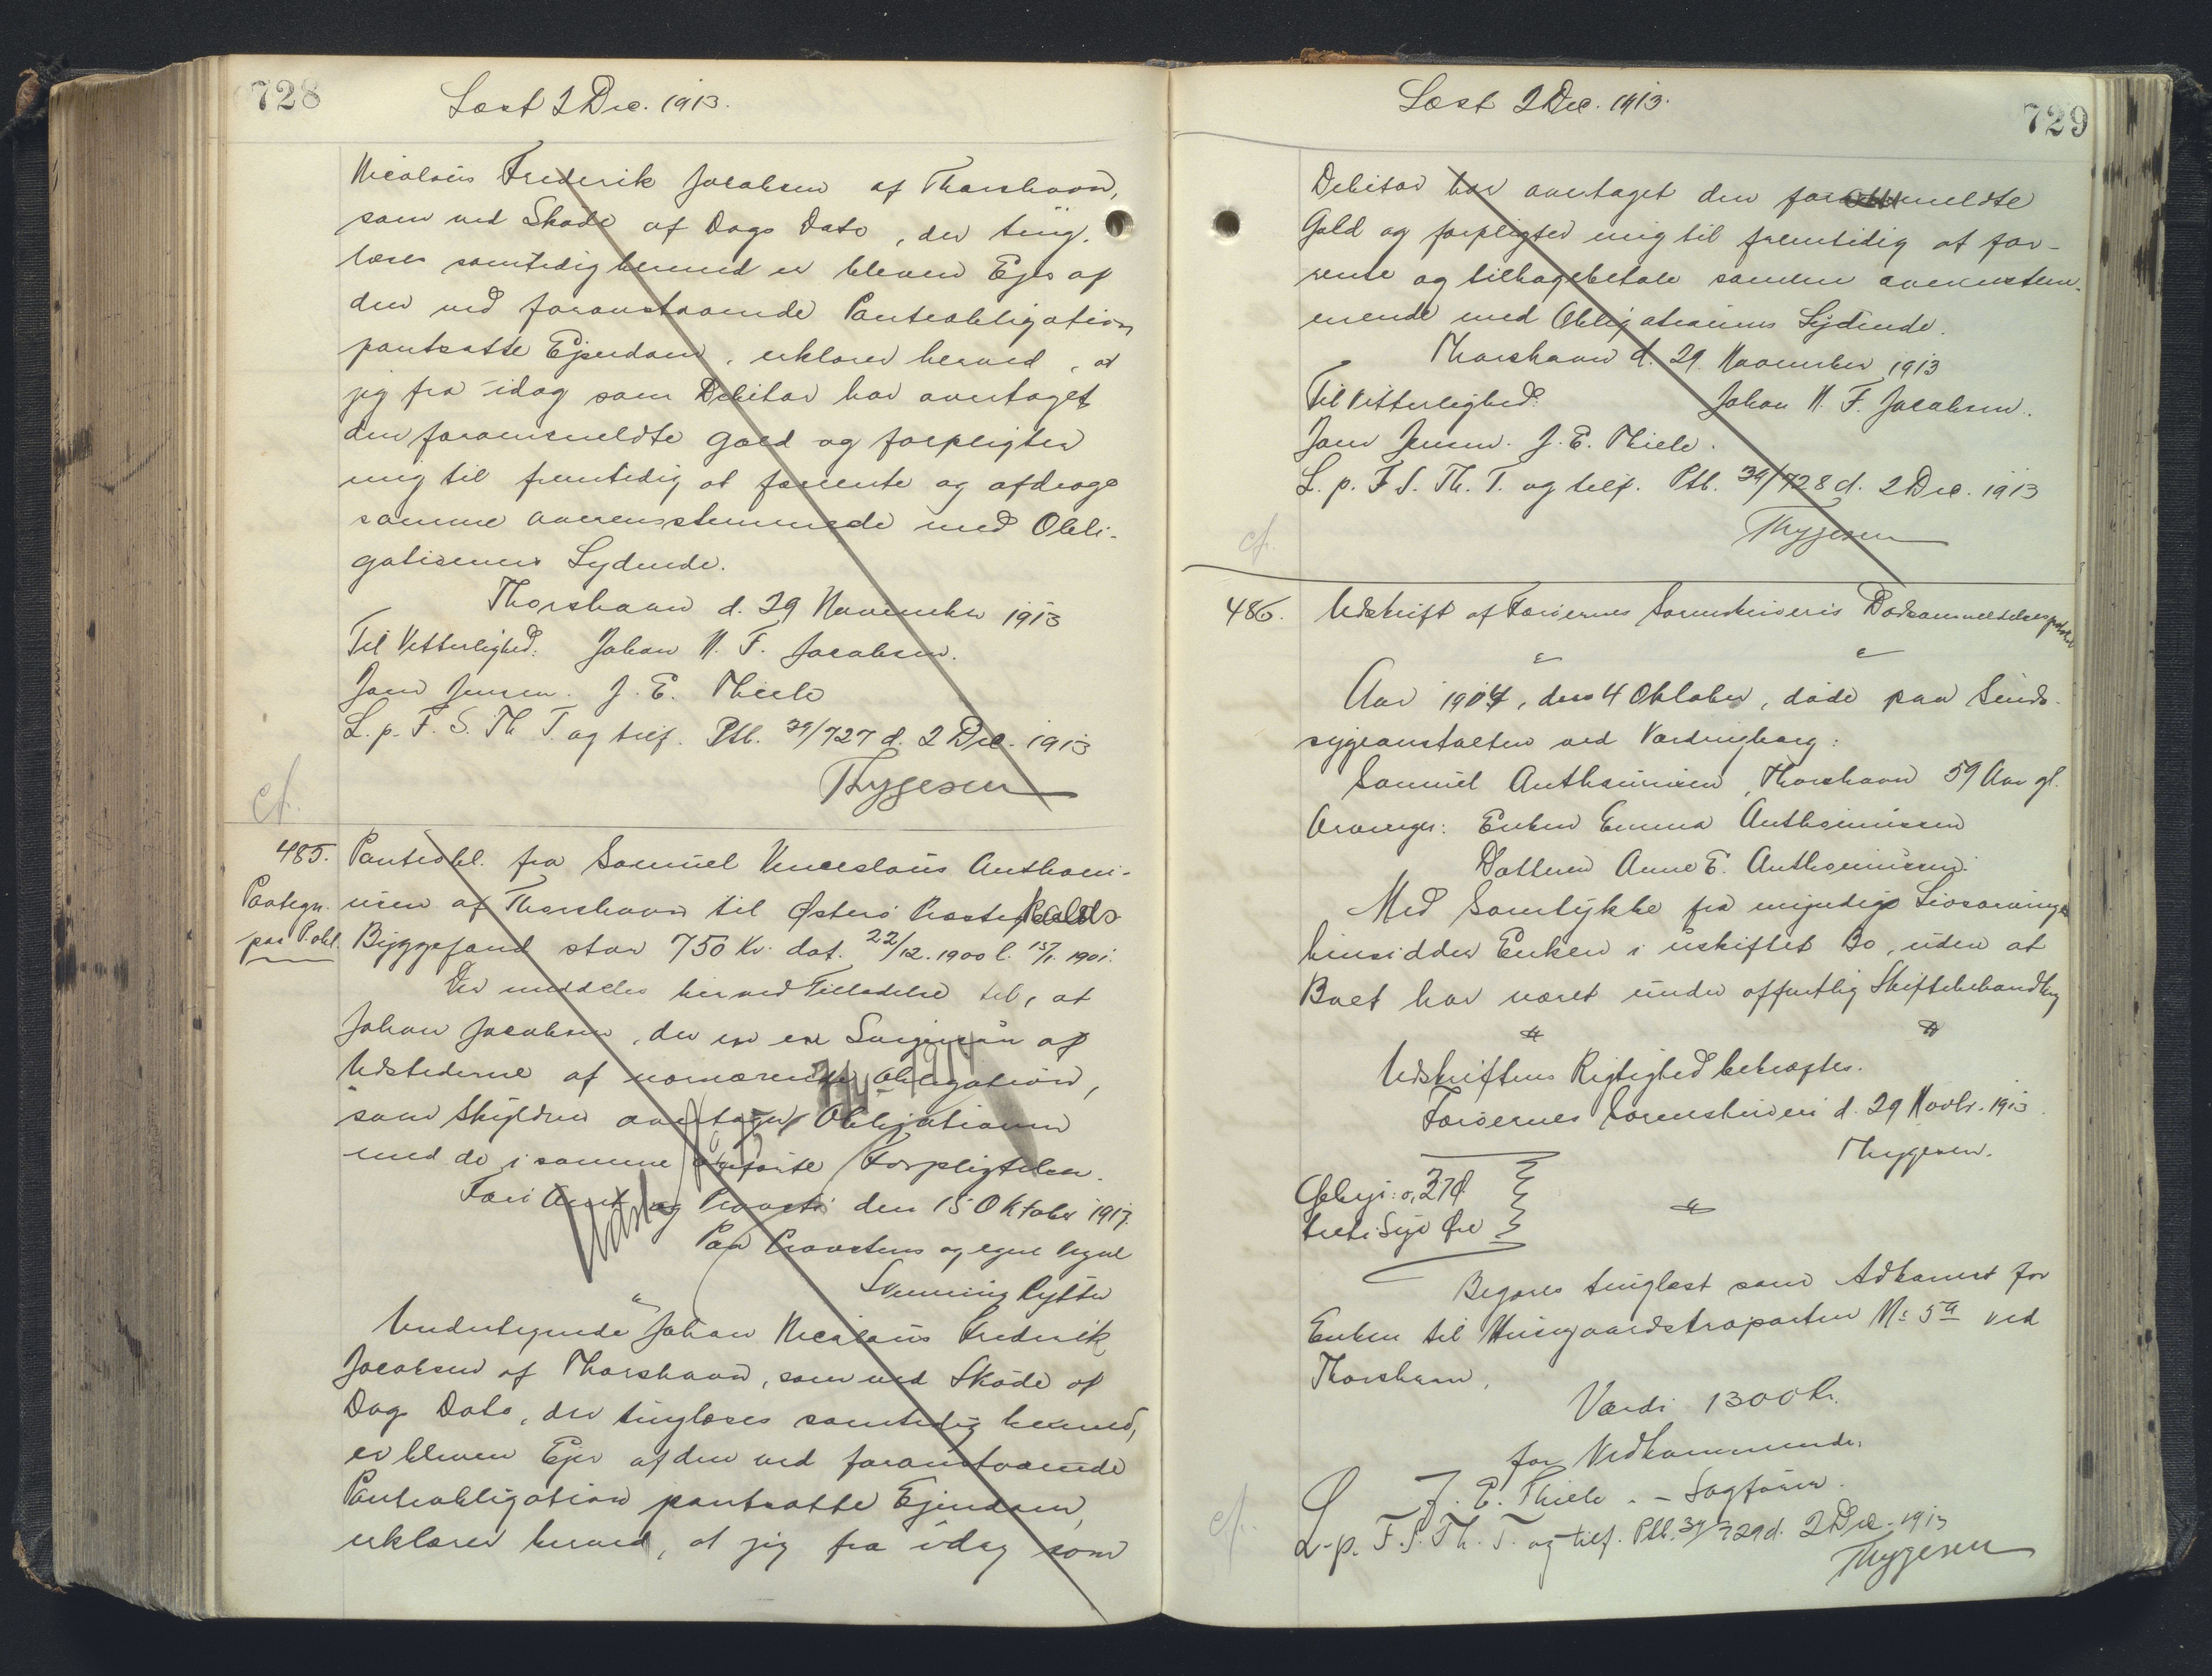 728
Læst 2 Dec. 1913.
Nicolaus Frederik Jacobsen af Thorshavn,
som ved Skøde af Dags Dato, der ting-
læses samtidig hermed er bleven Ejer af
den ved foranstaaende Panteobligation
pantsatte Ejendom, erklærer herved, at
jeg fra idag som Debitor har overtaget
den foranmeldte Gæld og forpligter
mig til fremtidig at forrente og afdrage
samme overensstemmende med Obli-
gationens Lydende.
Thorshavn d. 29 November 1913
Til Vitterlighed: Johan N. F. Jacobsen.
Jens Jensen. J. E. Thiele
L. p. F. S. Th. T. og tilf. Ptb. 39/727 d. 2 Dec. 1913
Thygesen
cf.
485. Panteobl. fra Samuel Venceslaus Anthoni-
Paategn. usen af Thorshavn til Østerø Præstegjælds
paa P.obl. Byggefond stor 750 Kr. dat. 22/12. 1900 l. 15/1. 1901.
Der meddeles herved Tilladelse til, at
Johan Jacobsen, der er en Svigersøn af
Udstederne af nærværende Obligation,
som Skyldner overtager Obligationen
med de i samme anførte Forpligtelser.
Færø Amt og Provsti den 15 Oktober 1913.
Paa Provstens og egne Vegne
Svenning Rytter
"
Undertegnede Johan Nicolaus Frederik
Jacobsen af Thorshavn, som ved Skøde af
Dags Dato, der tinglæses samtidig hermed,
er bleven Ejer af den ved foranstaaende
Panteobligation pantsatte Ejendom,
erklærer herved, at jeg fra idag som
729
Læst 2 Dec. 1913.
Debitor har overtaget den foranmeldte
Gæld og forpligter mig til fremtidig at for-
rente og tilbagebetale samme overensstem-
mende med Obligationens Lydende.
Thorshavn d. 29. November 1913
Til Vitterlighed: Johan N. F. Jacobsen.
Jens Jensen. J. E. Thiele.
L. p. F. S. Th. T. og tilf. Ptb. 39/728 d. 2 Dec. 1913
Thygesen
cf.
486. Udskrift af Færøernes Sorenskriveris Dødsanmeldelsesprotokol
Aar 1904, den 4 Oktober, døde paa Sinds-
sygeanstalten ved Vordingborg:
Samuel Anthoniusen, Thorshavn 59 Aar gl.
Arvinger: Enken Emma Anthoniusen
Datteren Anne E. Anthoniusen.
Med Samtykke fra myndige Livsarvinger
hensidder Enken i uskiftet Bo, uden at
Boet har været under offentlig Skiftebehandling
Udskriftens Rigtighed bekræftes.
Færøernes Sorenskriveri d. 29 Novbr. 1913.
Thygesen.
Gebyr: 0,27 Ø
tretisyv Øre
Begæres tinglæst som Adkomst for
Enken til Husegaardstraparten No 5a ved
Thorshavn.
Værdi 1300 Kr.
for Vedkommende.
J. E. Thiele. - Sagfører.
L. p. F. S. Th. T. og tilf. Ptb. 39/729 d. 2 Dec. 1913
Thygesen
cf.